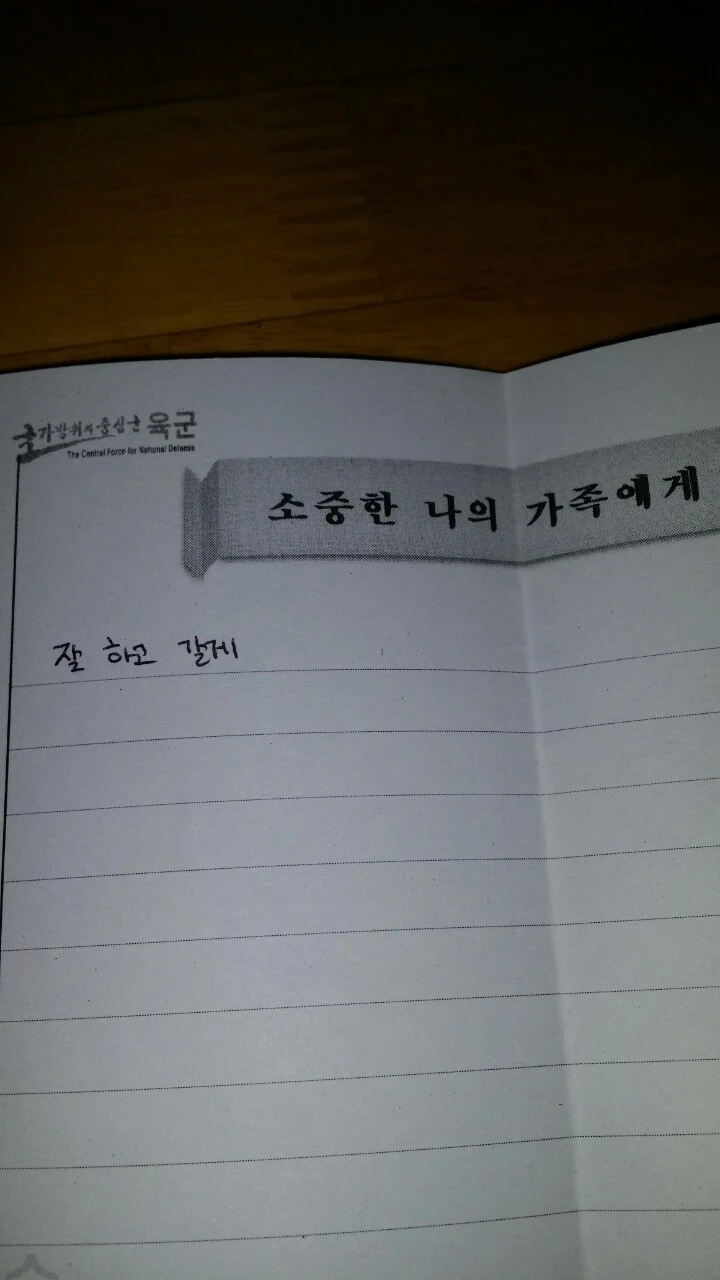 국가방위의 중심군 육군
The Central Force for National Defense
소중한 나의 가족에게
잘 하고 갈게